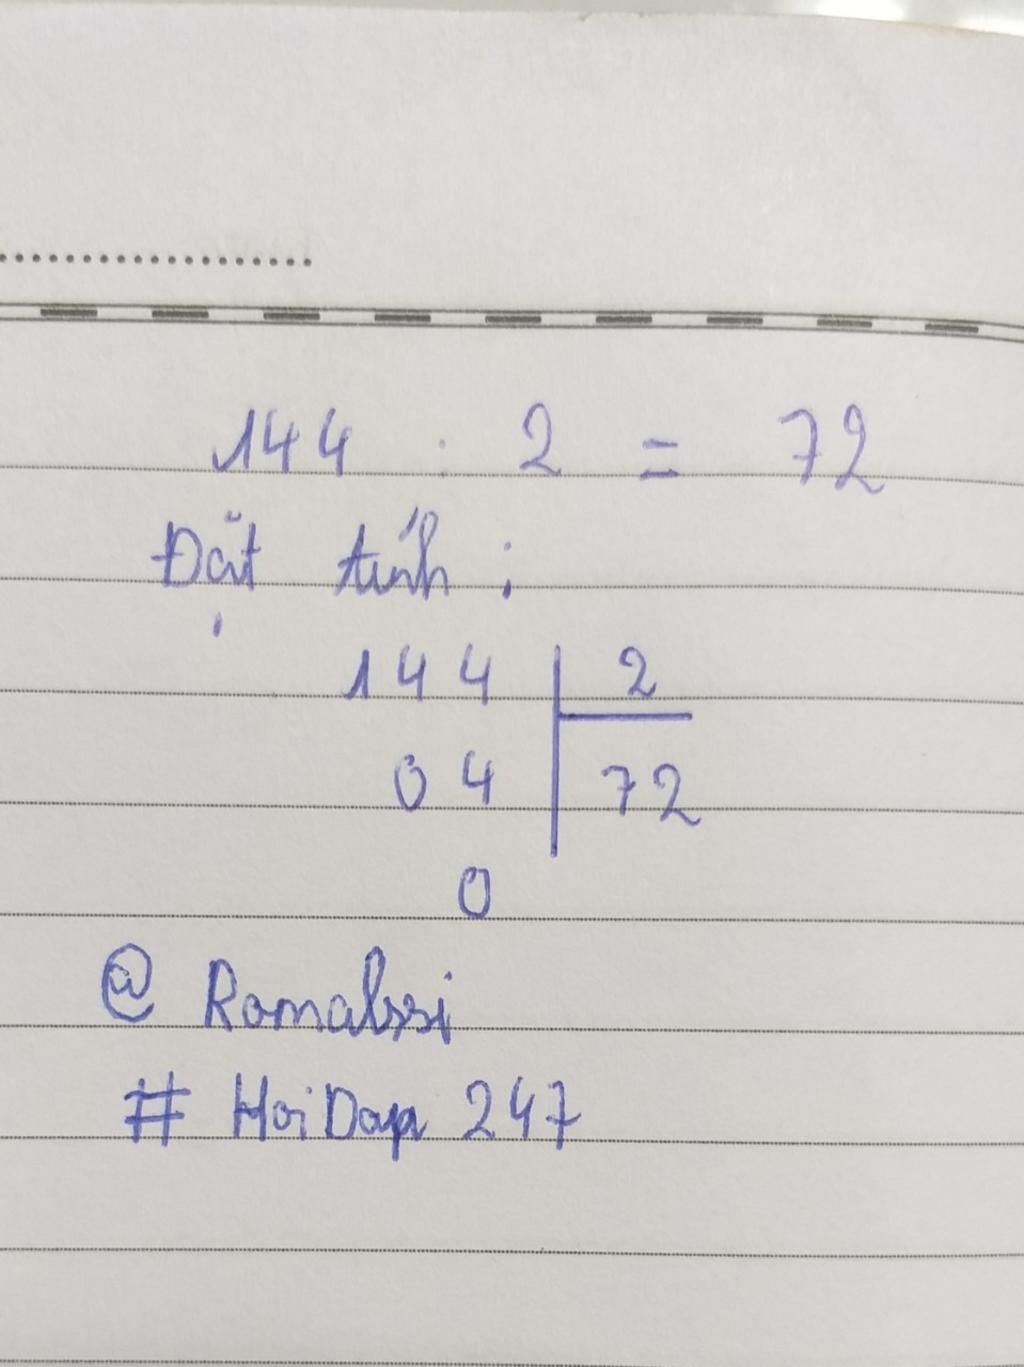 144 : 2 = 72
Đặt tính :
144 | 2
04 | 72
0
@ Romalssi
# HoiDap 247